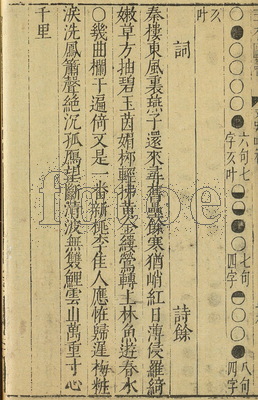 叶
六句七
字叶
七句
四字
八句
四字
詞
詩餘
秦樓東風裏燕子還來尋舊壘餘寒猶峭紅日薄侵羅綺
嫩草方抽碧玉茵媚柳輕拂黃金縷鶯轉上林魚游春水
○幾曲欄干遍倚又是一番新桃李佳人應怪歸遲梅粧
淚洗鳳簫聲絕沉孤鴈望斷清波無雙鯉雲山萬重寸心
千里